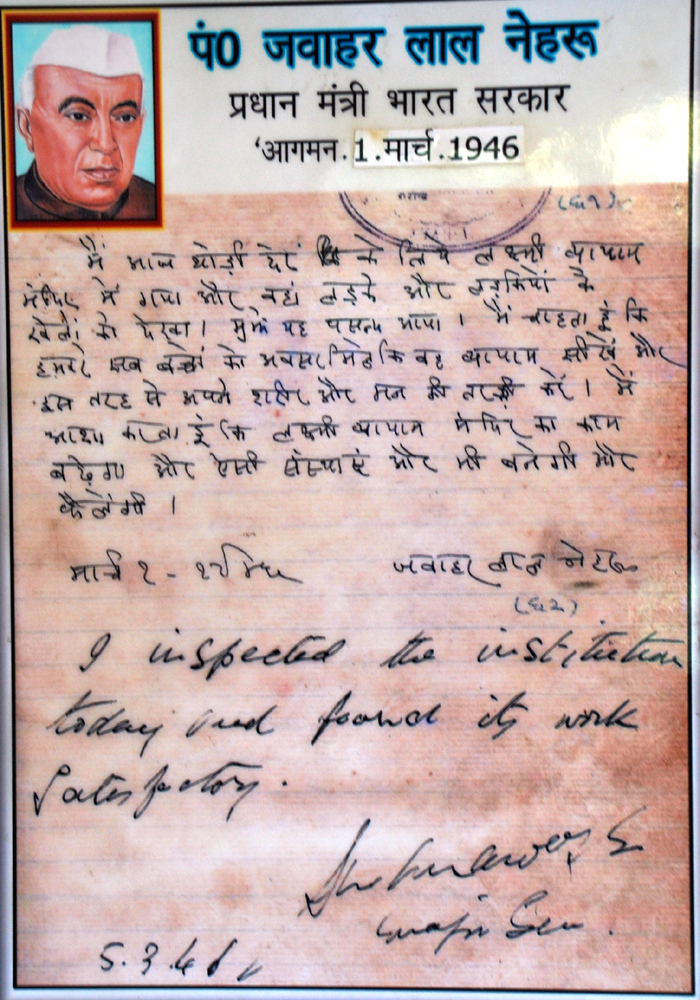 पं0 जवाहर लाल नेहरू
प्रधान मंत्री भारत सरकार
‘आगमन.1.मार्च.1946
(६१)
मैं आज थोड़ी देर के लिये लक्ष्मी व्यायाम
मंदिर में गया और वहां लड़के और लड़कियों के
खेलों को देखा। मुझे यह पसन्द आया। मैं चाहता हूं कि
हमारे सब बच्चों को अवसर मिले कि वह व्यायाम सीखें और
इस तरह से अपने शरीर और मन की तरक़्क़ी करें। मैं
आशा करता हूं कि लक्ष्मी व्यायाम मंदिर का काम
बढ़ेगा और ऐसी संस्थाएं और भी बनेगी और
फैलेंगी।
मार्च १ - १९४६ जवाहर लाल नेहरू
(६२)
I inspected the institution
today and found its work
Satisfactory.
Major Gen.
5.3.46